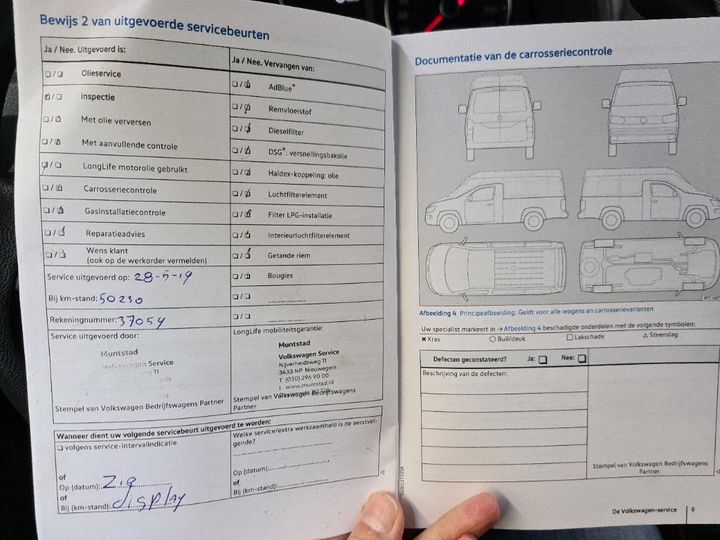 Bewijs 2 van uitgevoerde servicebeurten
Ja / Nee. Uitgevoerd is:
Olieservice
Inspectie
Met olie verversen
Met aanvullende controle
LongLife motorolie gebruikt
Carrosseriecontrole
Gasinstallatiecontrole
Reparatieadvies
Wens klant
(ook op de werkorder vermelden)
Service uitgevoerd op: 28-5-19
Bij km-stand: 50230
Rekeningnummer: 37054
Service uitgevoerd door:
Muntstad
Volkswagen Service
Stempel van Volkswagen Bedrijfswagens Partner
Ja / Nee. Vervangen van:
AdBlue®
Remvloeistof
Dieselfilter
DSG®: versnellingsbakolie
Haldex-koppeling: olie
Luchtfilterelement
Filter LPG-installatie
Interieurluchtfilterelement
Getande riem
Bougies
LongLife mobiliteitsgarantie:
Muntstad
Volkswagen Service
Nijverheidsweg 11
3433 NP Nieuwegein
T (030) 296 90 00
I www.muntstad.nl
Stempel van Volkswagen Bedrijfswagens
Partner
Wanneer dient uw volgende servicebeurt uitgevoerd te worden:
volgens service-intervalindicatie
of
Op (datum): Zie
of
Bij (km-stand): display
Welke service/extra werkzaamheid is de eerstvol-
gende?
Op (datum):
of
Bij (km-stand):
Documentatie van de carrosseriecontrole
Afbeelding 4 Principeafbeelding: Geldt voor alle wagens en carrosserievarianten
Uw specialist markeert in → Afbeelding 4 beschadigde onderdelen met de volgende symbolen:
✖ Kras ○ Buil/deuk □ Lakschade △ Steenslag
Defecten geconstateerd? Ja: Nee:
Beschrijving van de defecten:
Stempel van Volkswagen Bedrijfswagens
Partner
De Volkswagen-service 9